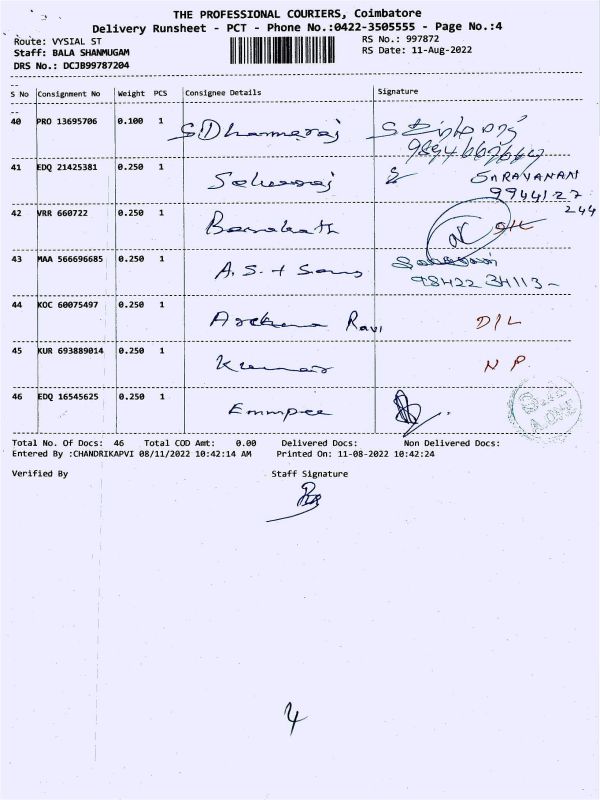 THE PROFESSIONAL COURIERS, Coimbatore
Delivery Runsheet - PCT - Phone No.:0422-3505555 - Page No.:4
Route: VYSIAL ST
RS No.: 997872
Staff: BALA SHANMUGAM
RS Date: 11-Aug-2022
DRS No.: DCJB99787204
S No Consignment No Weight PCS Consignee Details Signature
40 PRO 13695706 0.100 1 S Dharmaraj
41 EDQ 21425381 0.250 1 SARAVANAN
99441 27
244
42 VRR 660722 0.250 1
43 MAA 566696685 0.250 1 A.S. + Sons
98422 34113
44 KOC 60075497 0.250 1 Archana Ravi D/L
45 KUR 693889014 0.250 1 Kumar N P.
46 EDQ 16545625 0.250 1 Emmpee
Total No. Of Docs: 46 Total COD Amt: 0.00 Delivered Docs: Non Delivered Docs:
Entered By :CHANDRIKAPVI 08/11/2022 10:42:14 AM Printed On: 11-08-2022 10:42:24
Verified By Staff Signature
4